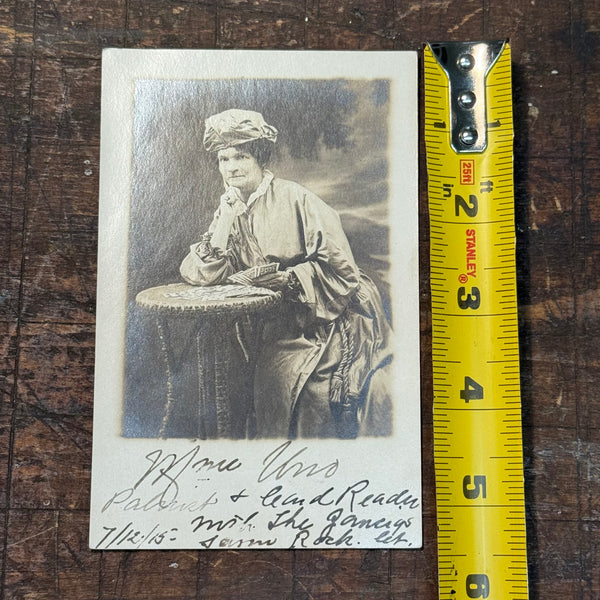 Mme Uno
Palmist & Card Reader
7/12/15 - with The
Rock
1
25ft
in ft
2
STANLEY®
3
4
5
6